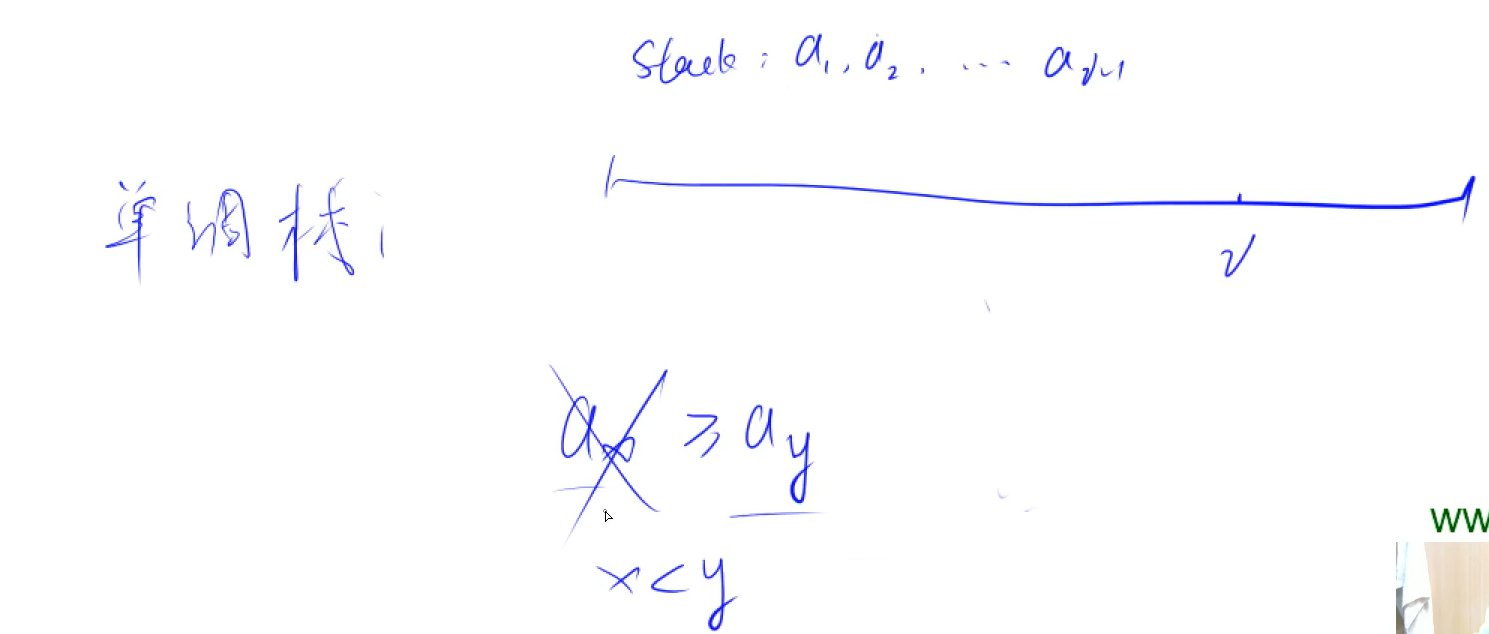 Stack: a₁, a₂, ... aᵢ₋₁
单调栈:
i
aₓ ≥ a_y
x < y
WW